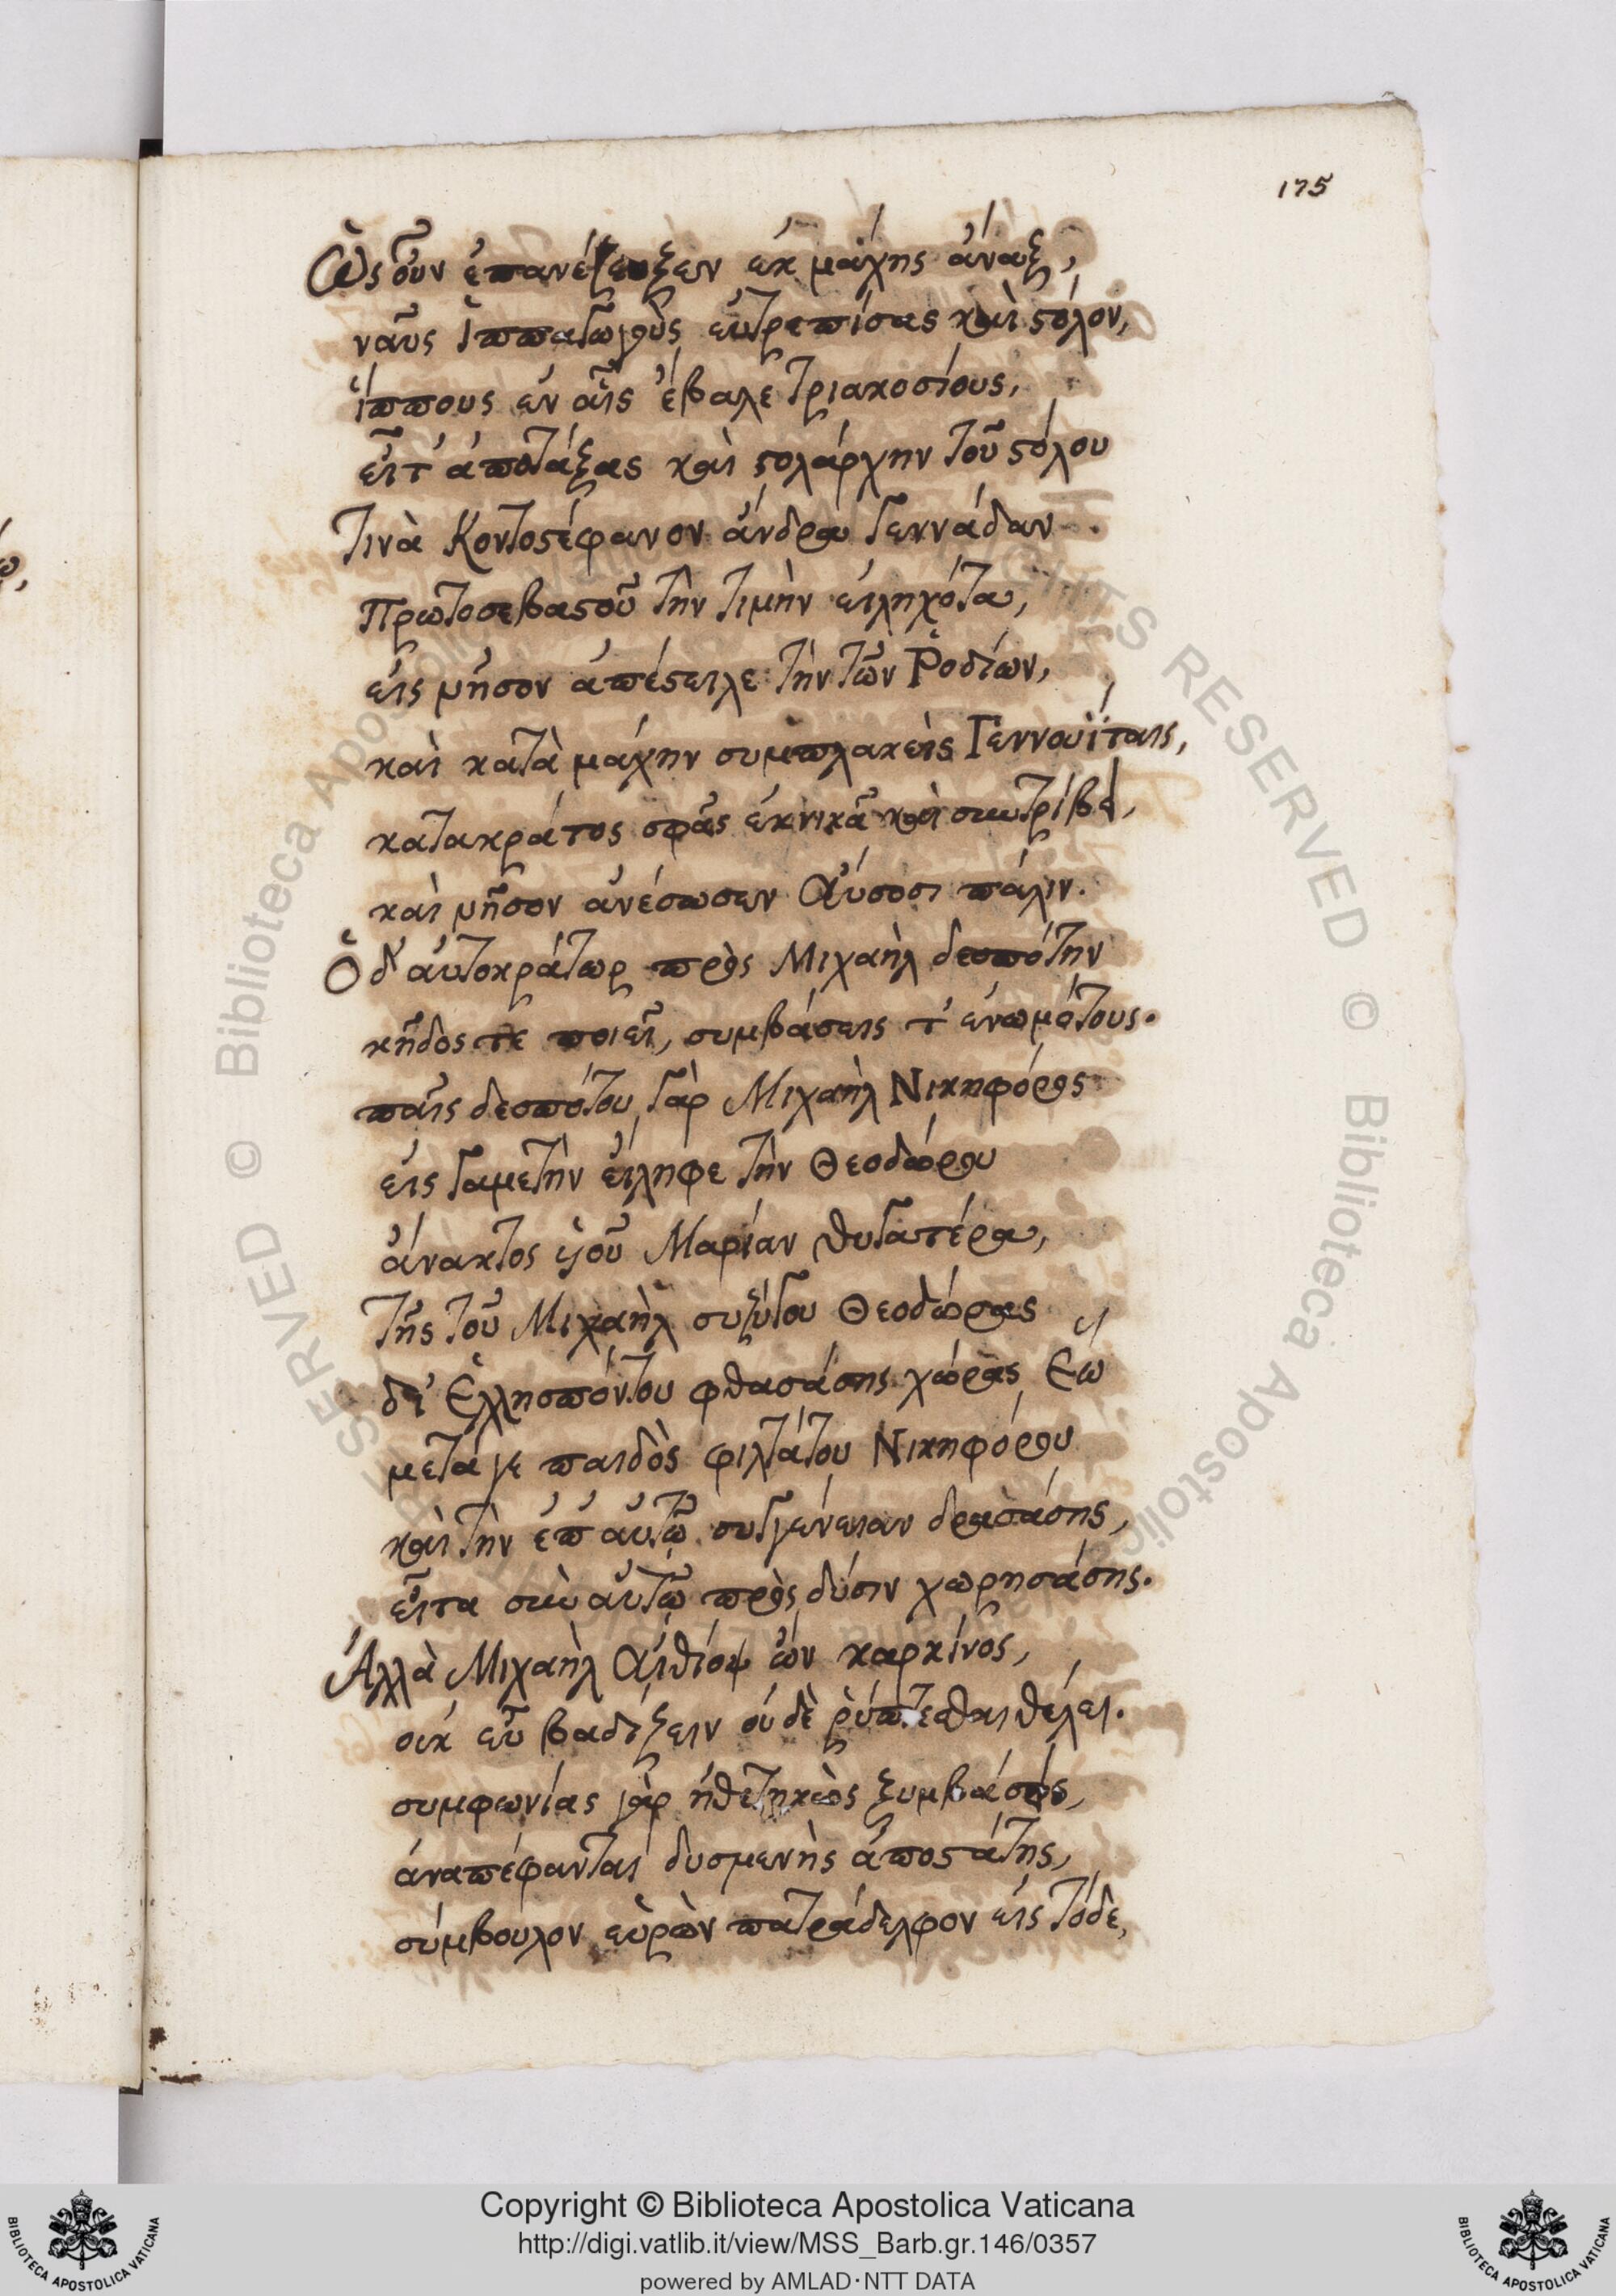 175
Ὡς οὖν ἐπανέζευξεν ἐκ μάχης ἄναξ,
ναῦς ἱππαγωγοὺς εὐτρεπίσας καὶ στόλον,
ἵππους ἐν αἷς ἔβαλε τριακοσίους,
εἶτ' ἀποτάξας καὶ στολάρχην τοῦ στόλου
τινὰ Κοντοστέφανον ἄνδρα γεννάδαν
Πρωτοσεβαστοῦ τὴν τιμὴν εἰληχότα,
εἰς νῆσον ἀπέστειλε τὴν τῶν Ῥοδίων,
καὶ κατὰ μάχην συμπλακεὶς Γεννουΐταις,
κατακράτος σφᾶς ἐκνικᾷ καὶ συντρίβει,
καὶ νῆσον ἀνέσωσεν Αὔσοσι πάλιν.
Ὁ δ' αὐτοκράτωρ πρὸς Μιχαὴλ δεσπότην
κῆδός τε ποιεῖ, συμβάσεις τ' ἐνωμότους.
παῖς δεσπότου γὰρ Μιχαὴλ Νικηφόρος
εἰς γαμετὴν εἴληφε τὴν Θεοδώρου
ἄνακτος υἱοῦ Μαρίαν θυγατέρα,
τῆς τοῦ Μιχαὴλ συζύγου Θεοδώρας
δι' Ἑλλησπόντου φθασάσης χώρας Ἕω
μετά γε παιδὸς φιλτάτου Νικηφόρου
καὶ τὴν ἐπ' αὐτῷ συγγένειαν δρασάσης,
εἶτα σὺν αὐτῷ πρὸς δύσιν χωρησάσης.
Ἀλλὰ Μιχαὴλ Αἰθίοψ ὢν καρκίνος,
οὐκ εὖ βαδίζειν οὐδὲ ῥύπτεσθαι θέλει.
συμφωνίας γὰρ ἠθετηκὼς ξυμβάσεις,
ἀναπέφανται δυσμενὴς ἀποστάτης,
σύμβουλον εὑρὼν πατράδελφον εἰς τόδε,
Copyright © Biblioteca Apostolica Vaticana
http://digi.vatlib.it/view/MSS_Barb.gr.146/0357
powered by AMLAD·NTT DATA
BIBLIOTECA APOSTOLICA VATICANA
BIBLIOTECA APOSTOLICA VATICANA